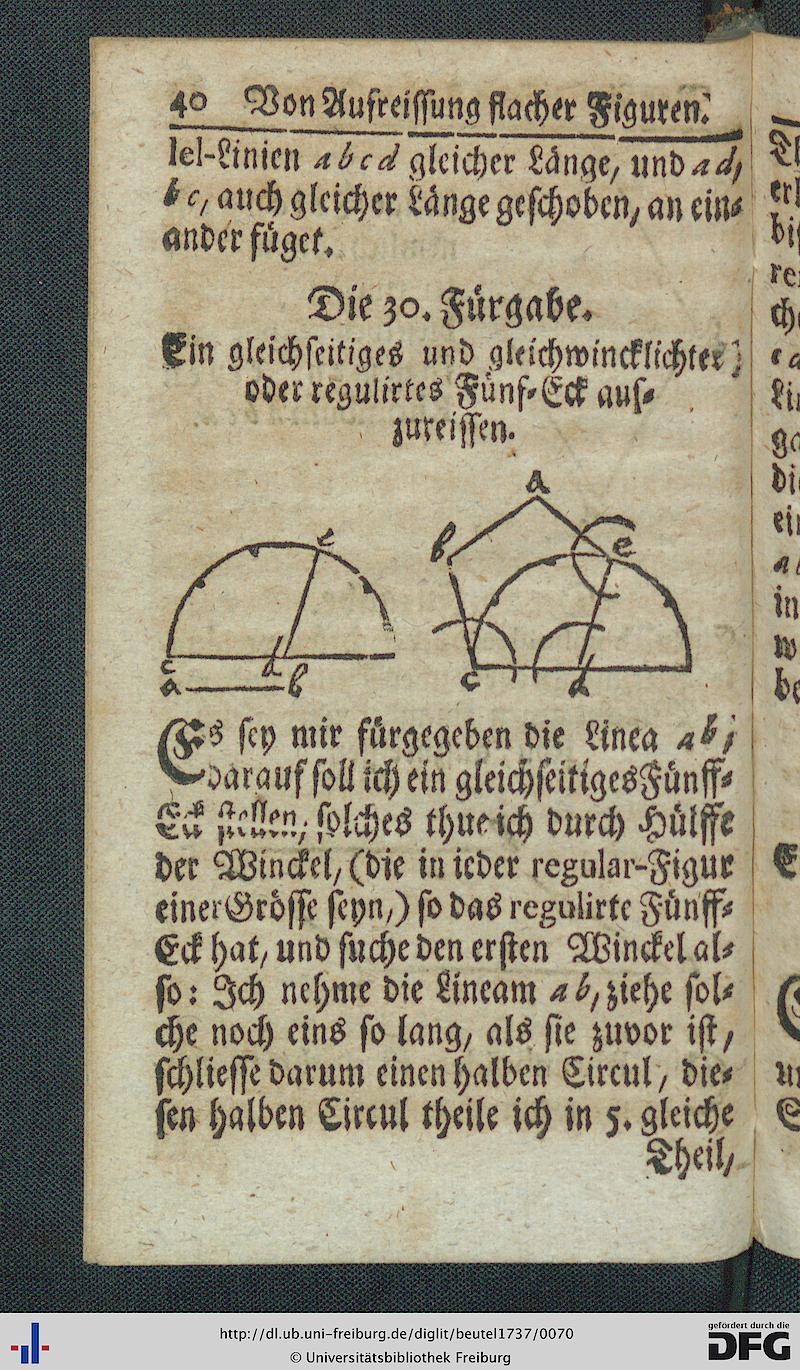 40 Von Aufreissung flacher Figuren.
lel-Linien a b c d gleicher Länge, und a d,
b c, auch gleicher Länge geschoben, an ein-
ander füget.
Die 30. Fürgabe.
Ein gleichseitiges und gleichwincklichtes
oder regulirtes Fünf-Eck auf-
zureissen.
a
b e e
c d b c d
a b
Es sey mir fürgegeben die Linea a b,
darauf soll ich ein gleichseitiges Fünff-
Eck stellen, solches thue ich durch Hülffe
der Winckel, (die in ieder regular-Figur
einer Grösse seyn,) so das regulirte Fünff-
Eck hat, und suche den ersten Winckel al-
so: Ich nehme die Lineam a b, ziehe sol-
che noch eins so lang, als sie zuvor ist,
schliesse darum einen halben Circul, die-
sen halben Circul theile ich in 5. gleiche
Theil,
http://dl.ub.uni-freiburg.de/diglit/beutel1737/0070
© Universitätsbibliothek Freiburg
gefördert durch die
DFG